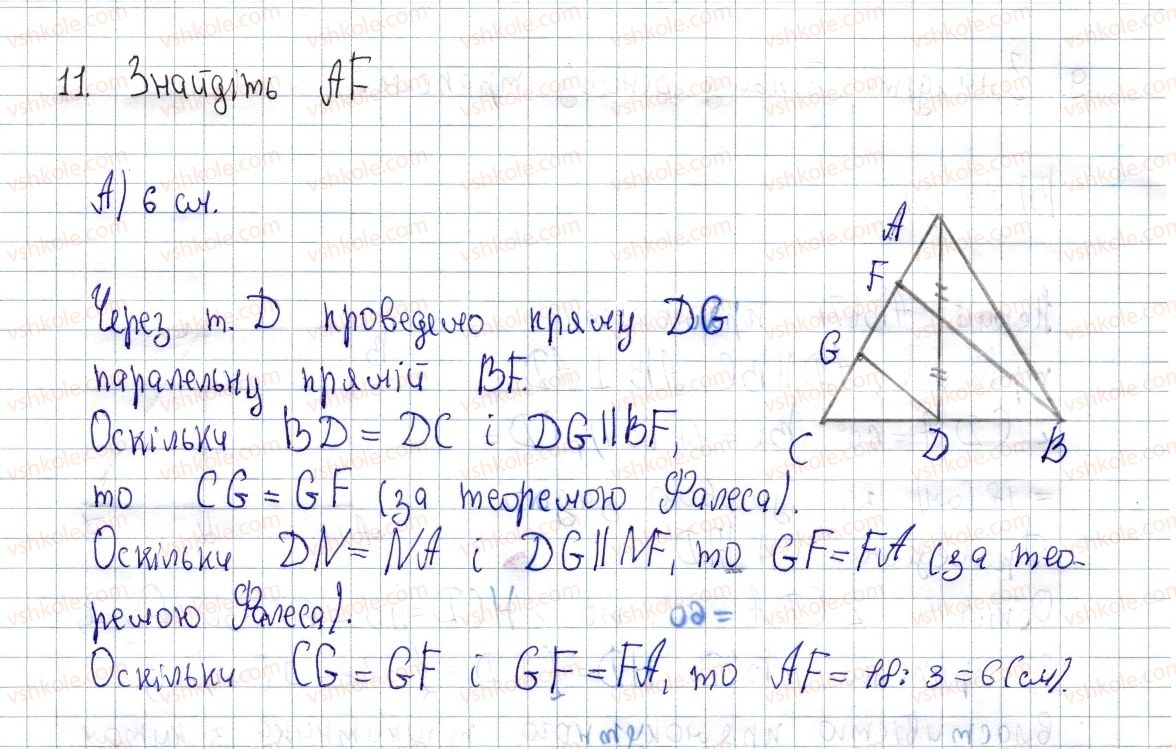 11. Знайдіть AF
А) 6 см.
Через т. D проведемо пряму DG
паралельну прямій BF.
Оскільки BD = DC і DG || BF,
то CG = GF (за теоремою Фалеса).
Оскільки DN = NA і DG || NF, то GF = FA (за тео-
ремою Фалеса).
Оскільки CG = GF і GF = FA, то AF = 18 : 3 = 6 (см).
A
F
G
C
D
B
vshkole.com